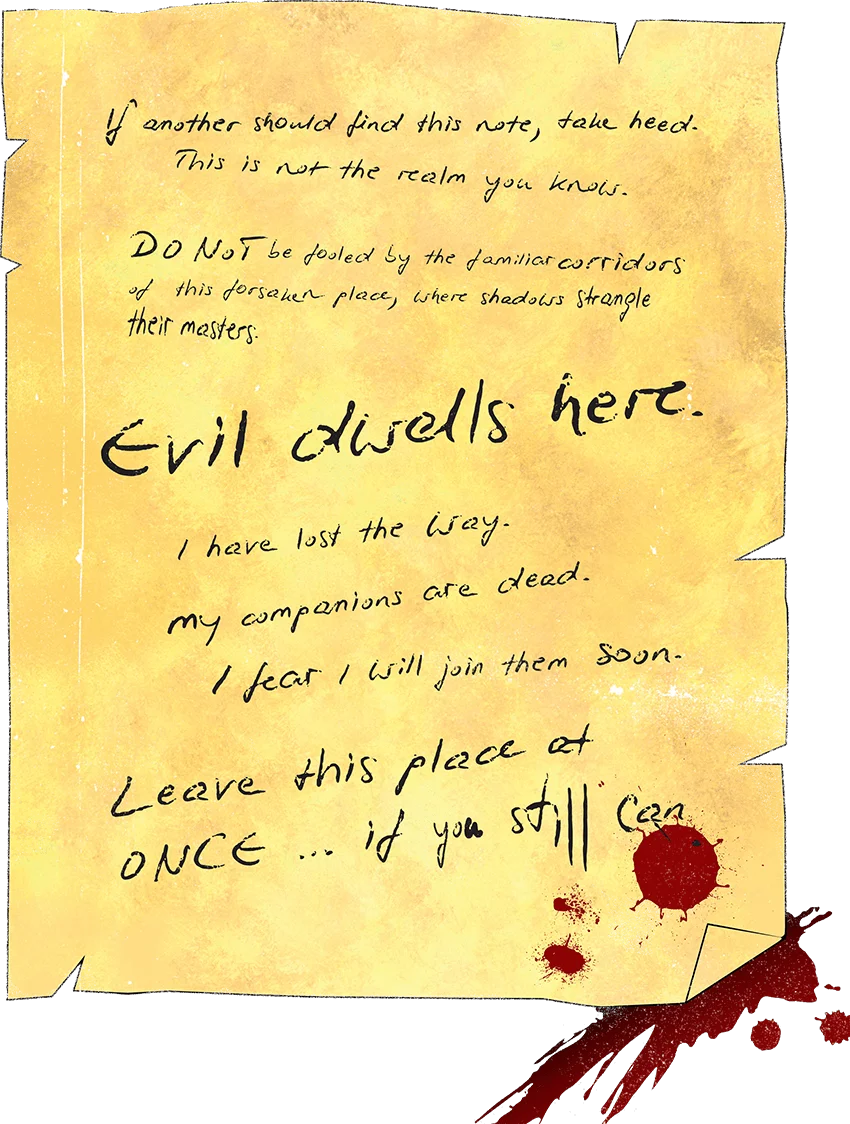 If another should find this note, take heed.
This is not the realm you know.
DO NOT be fooled by the familiar corridors
of this forsaken place, where shadows strangle
their masters.
Evil dwells here.
I have lost the way.
my companions are dead.
I fear I will join them soon.
Leave this place at
ONCE ... if you still can